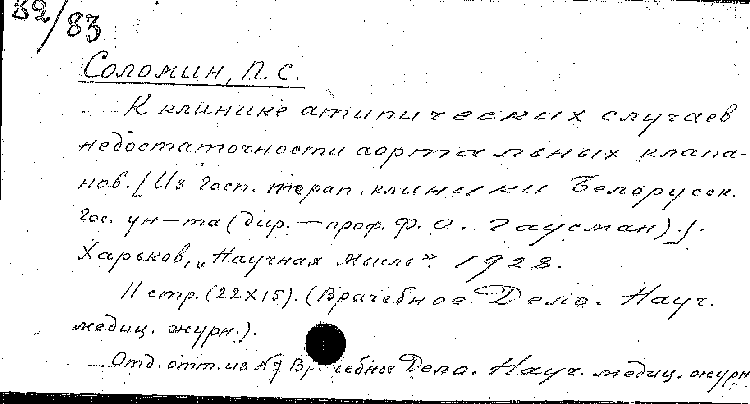 82/83
Соломин, П. С.
К клинике атипических случаев
недостаточности аортальных клапа-
нов. [Из госп. терап. клиники Белорусск.
Гос. ун-та (дир. — проф. Ф. О. Гаусман)].
Харьков, „Научная мысль". 1928.
11 стр. (22X15). (Врачебное Дело. Науч.
медиц. журн.).
Отд. отт. из Врачебное Дело. Науч. медиц. журн